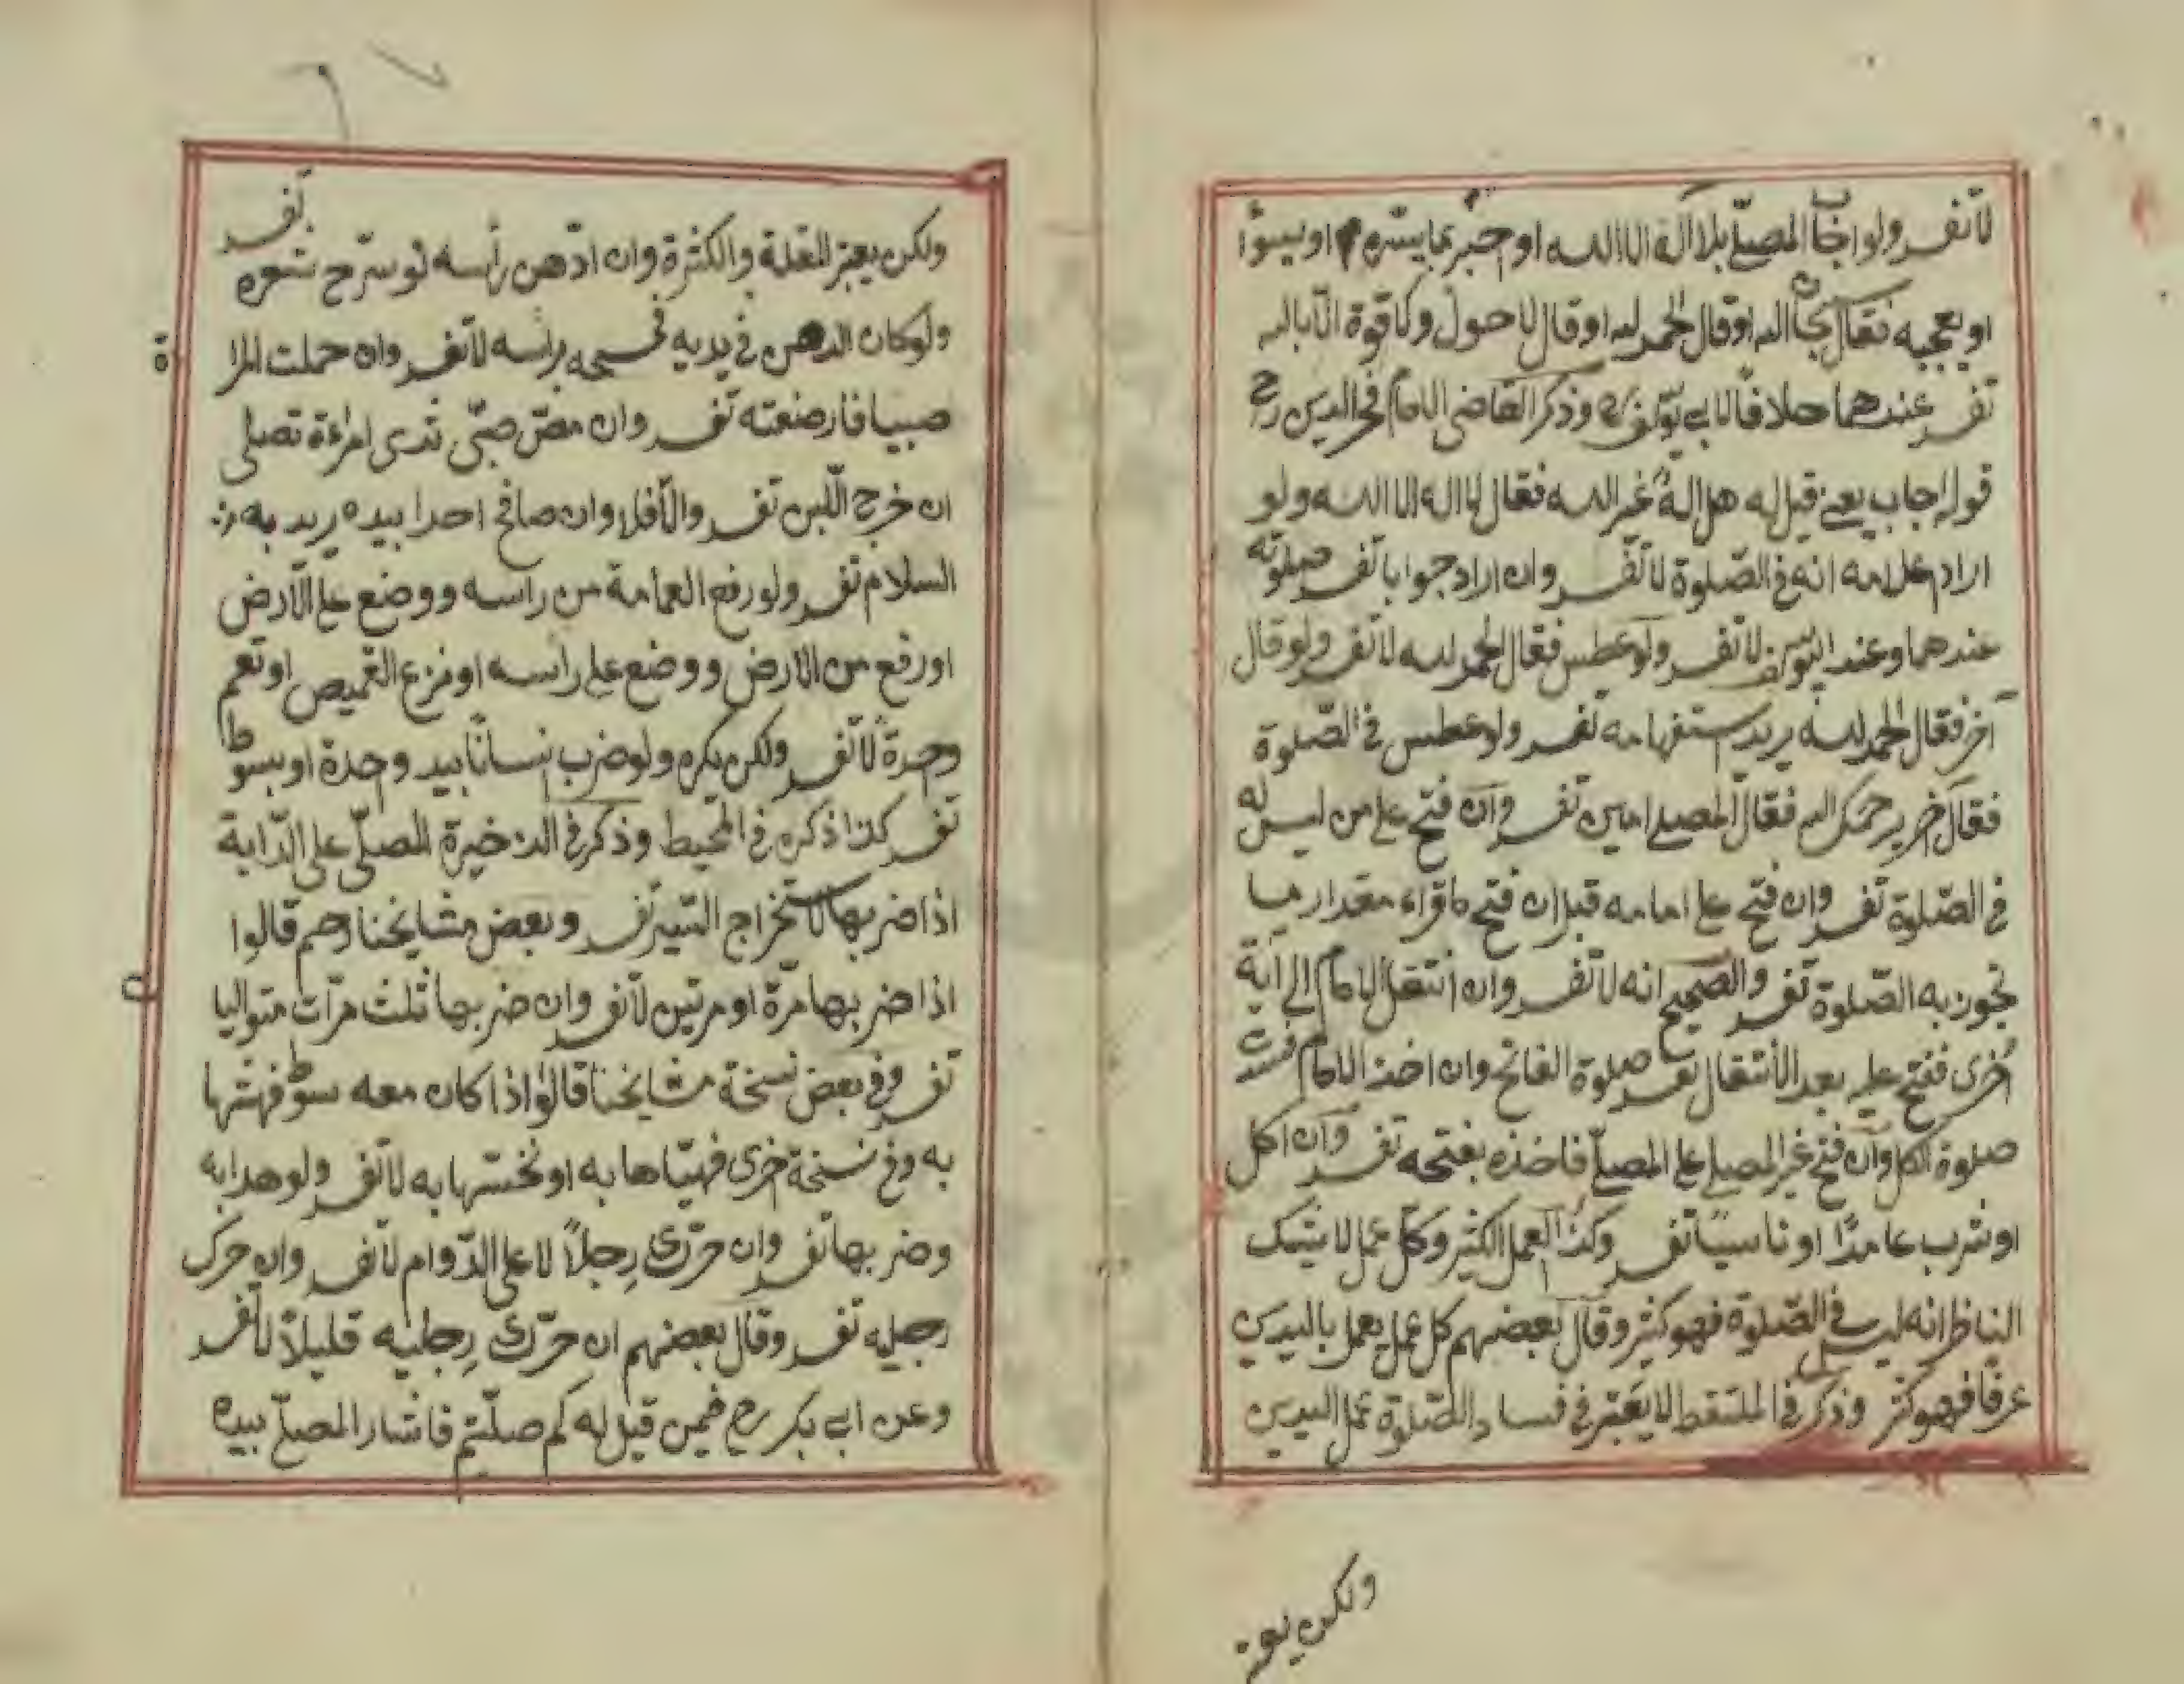 لا تفسد ولو اجاب المصلي بلا اله الا الله او خبر بما يسره او يسوأ
او يعجبه فقال سبحان الله او قال الحمد لله او قال لا حول ولا قوة الا بالله
تفسد عندهما خلافا لابي يوسف رح وذكر القاضي الامام فخر الدين رح
قوله اجاب يعني قيل له هل اله غير الله فقال لا اله الا الله ولو
اراد علامه انه في الصلوة لا تفسد وان اراد جوابا تفسد صلوته
عندهما وعند ابي يوسف لا تفسد ولو عطس فقال الحمد لله لا تفسد ولو قال
آخر فقال الحمد لله يريد استفهامه تفسد ولو عطس في الصلوة
فقال آخر يرحمك الله فقال المصلي امين تفسد وان فتح على من ليس له
في الصلوة تفسد وان فتح على امامه قبل ان فتح ما قراء مقدار ما
تجوز به الصلوة تفسد والصحيح انه لا تفسد وان انتقل الامام الى آية
اخرى ففتح عليه بعد الانتقال تفسد صلوة الفاتح وان اخذ الامام فسدت
صلوة الكل وان فتح غير المصلي على المصلي فاخذه بفتحه تفسد وان اكل
او شرب عامدا او ناسيا تفسد وكذا العمل الكثير وكل عمل لا يشك
الناظر انه ليس في الصلوة فهو كثير وقال بعضهم كل عمل يعمل باليدين
عرفا فهو كثير وذكر في الملتقط لا يعتبر في فساد الصلوة عمل اليدين
ولكن يعتبر
ولكن يعتبر القلة والكثرة وان ادهن رأسه او سرح شعره تفسد
ولو كان الدهن في يديه فمسحه برأسه لا تفسد وان حملت المراة
صبيا فارضعته تفسد وان مص صبي ثدى امراءة تصلي
ان خرج اللبن تفسد والا فلا وان صافح احدا بيده يريد به
السلام تفسد ولو رفع العمامة من راسه ووضع على الارض
او رفع من الارض ووضع على رأسه او نزع القميص او تعمم
وحدة لا تفسد ولكن يكره ولو ضرب انسانا بيد وحدة او بسوط
تفسد كذا ذكره في المحيط وذكر في الذخيرة المصلي على الدابة
اذا ضربها لاستخراج السير تفسد وبعض مشايخنا رحهم قالوا
اذا ضربها مرة او مرتين لا تفسد وان ضربها ثلث مرات متواليا
تفسد وفي بعض نسخة مشايخنا قالوا اذا كان معه سوط فهشها
به وفي نسخة اخرى فهياها به او نخسها به لا تفسد ولو هدا به
وضربها تفسد وان حرك رجلا لا على الدوام لا تفسد وان حرك
رجليه تفسد وقال بعضهم ان حرك رجليه قليلا لا تفسد
وعن ابي بكر رح فيمن قيل له كم صليتم فاشار المصلي بيده